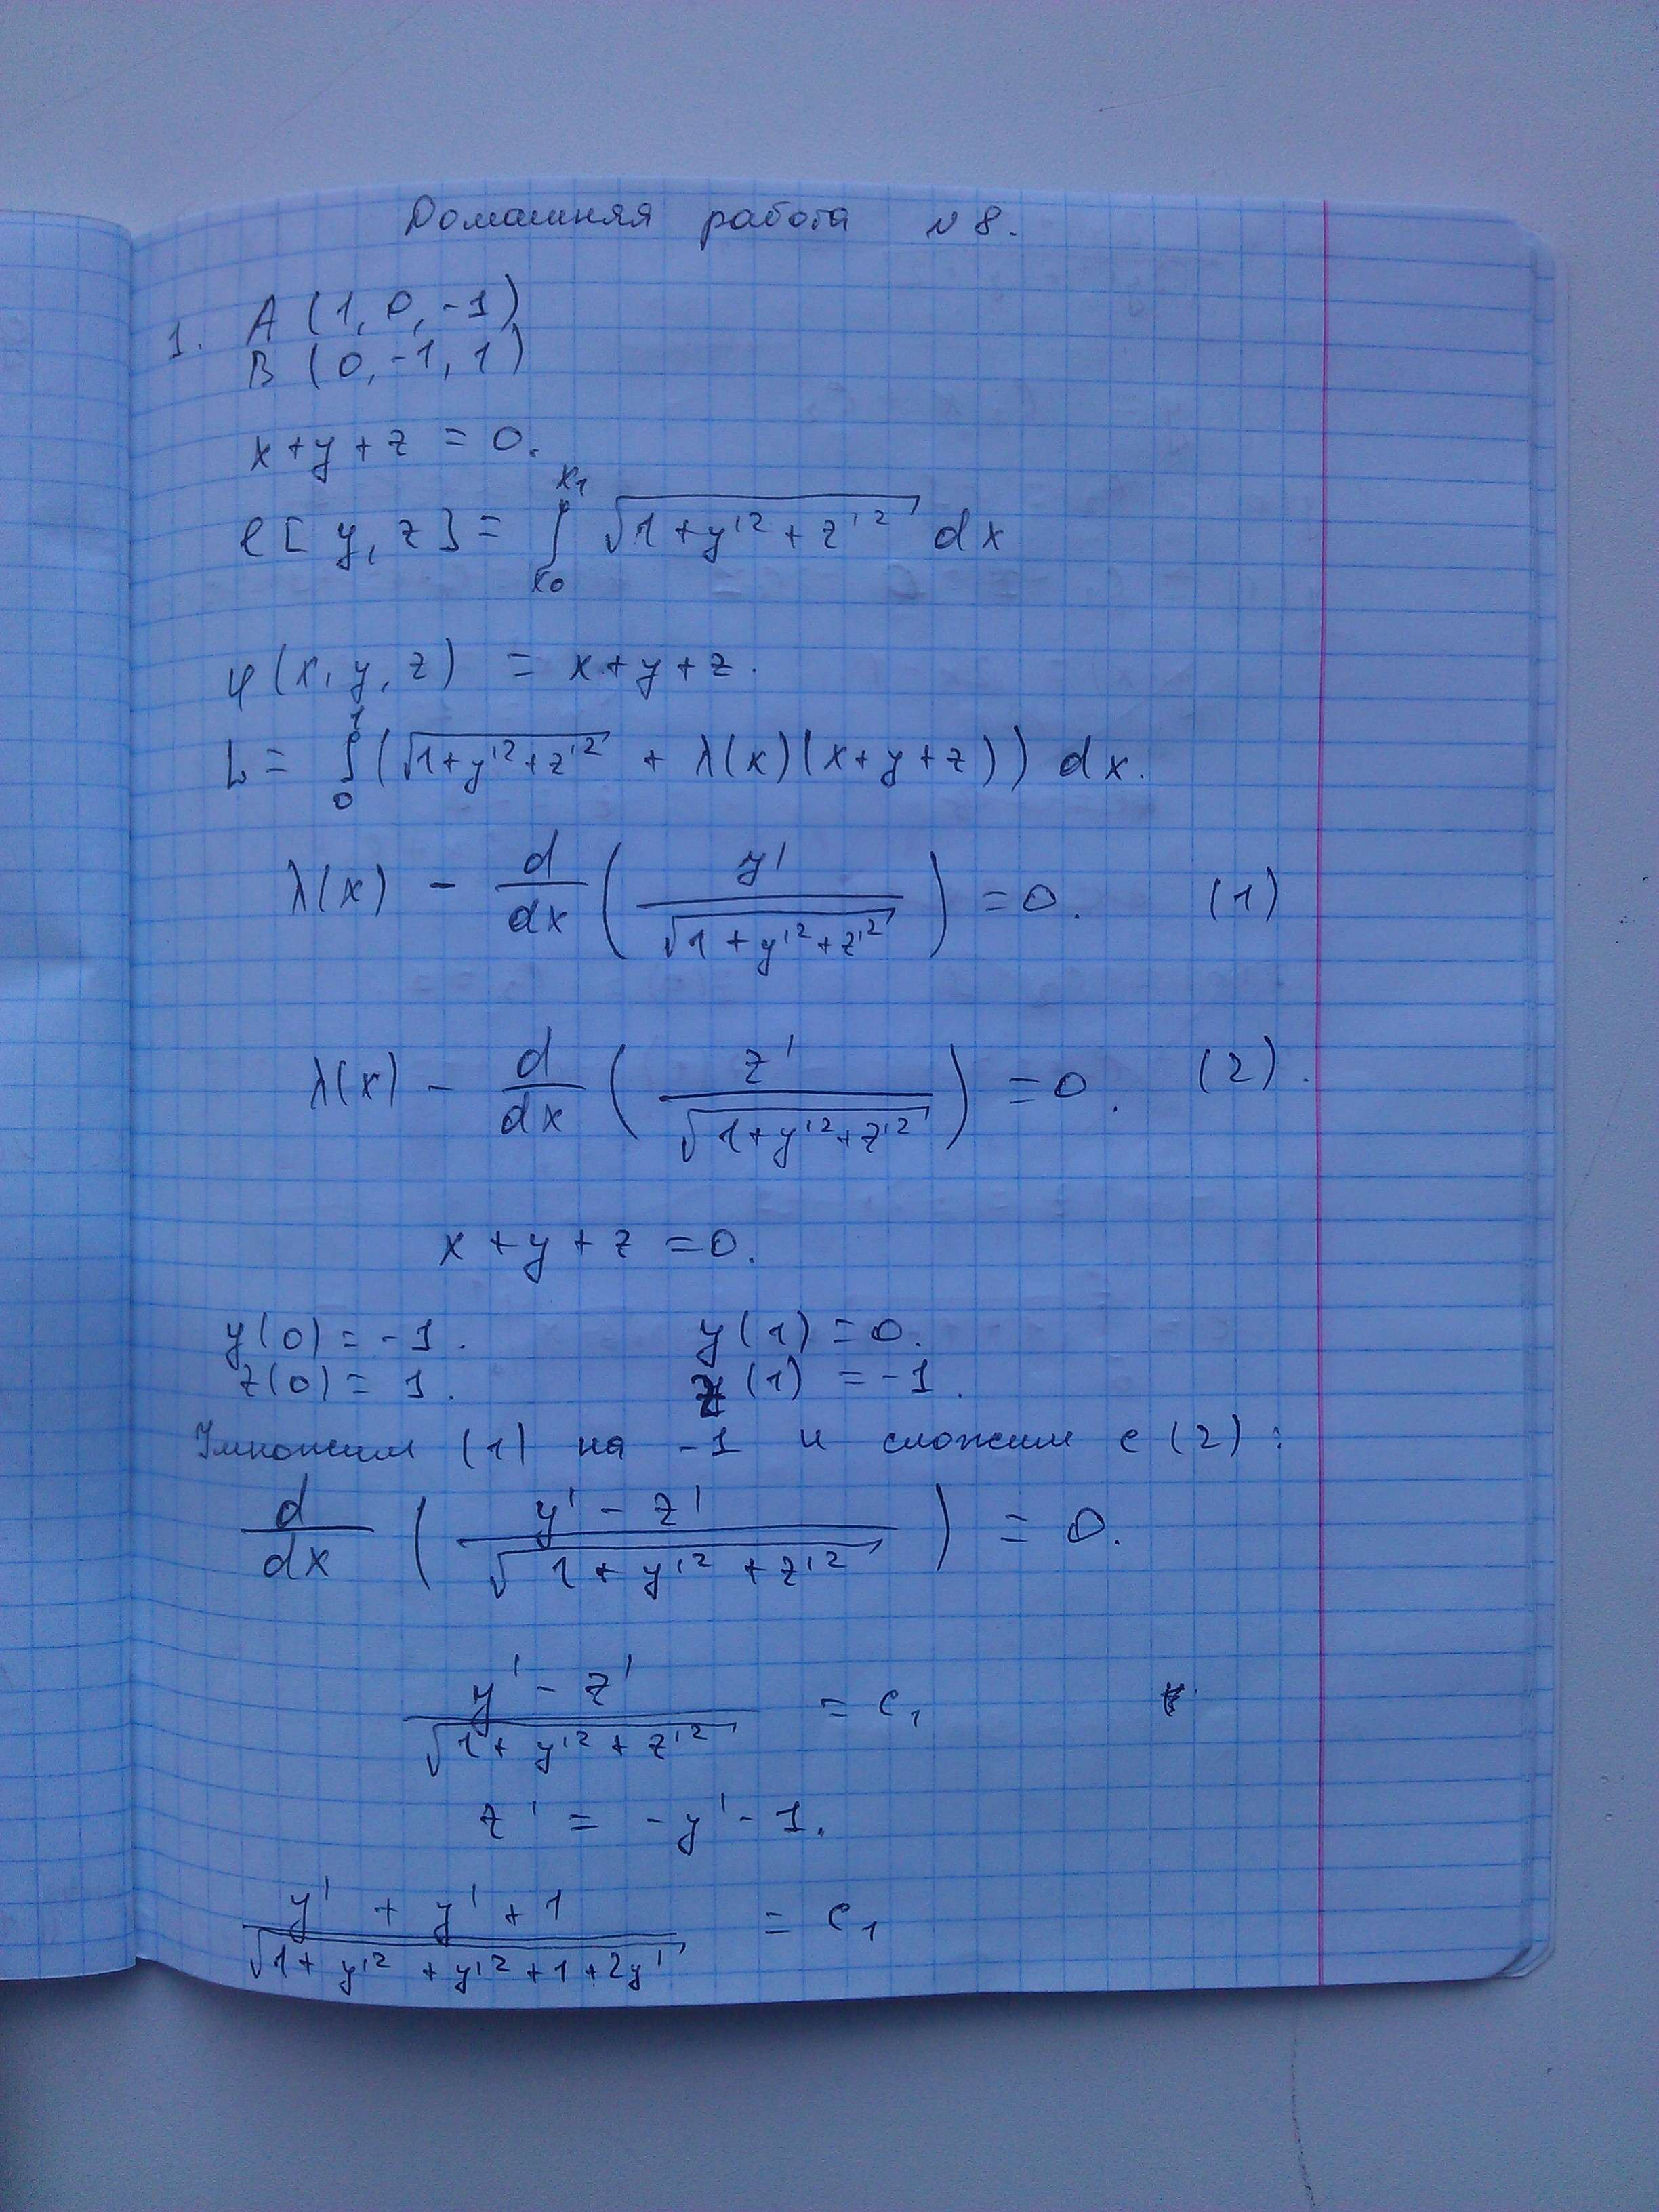 Домашняя работа N 8.
1. A (1, 0, -1)
B (0, -1, 1)
x + y + z = 0.
l[y, z] = ∫_{x₀}^{x₁} √(1 + y'² + z'²) dx
φ(x, y, z) = x + y + z.
L = ∫_0^1 (√(1 + y'² + z'²) + λ(x)(x + y + z)) dx.
λ(x) - d/dx (y' / √(1 + y'² + z'²)) = 0. (1)
λ(x) - d/dx (z' / √(1 + y'² + z'²)) = 0. (2).
x + y + z = 0.
y(0) = -1. y(1) = 0.
z(0) = 1. z(1) = -1.
Умножим (1) на -1 и сложим с (2):
d/dx ((y' - z') / √(1 + y'² + z'²)) = 0.
(y' - z') / √(1 + y'² + z'²) = c₁
z' = -y' - 1.
(y' + y' + 1) / √(1 + y'² + y'² + 1 + 2y') = c₁